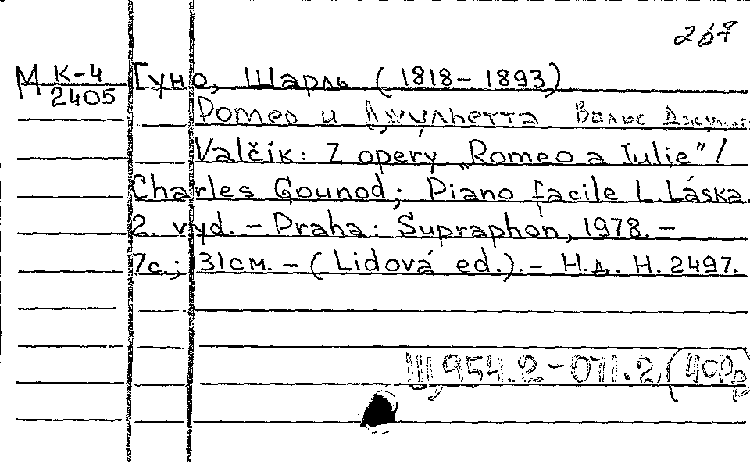 267
М К-4 Гуно, Шарль (1818-1893)
2405
Ромео и Джульетта Вальс
Valčík: Z opery „Romeo a Julie" /
Charles Gounod; Piano facile L. Láska.
2. vyd. - Praha: Supraphon, 1978. -
7с.; 31см. - (Lidová ed.). - Н.д. H. 2497.
Щ954.2-071.2